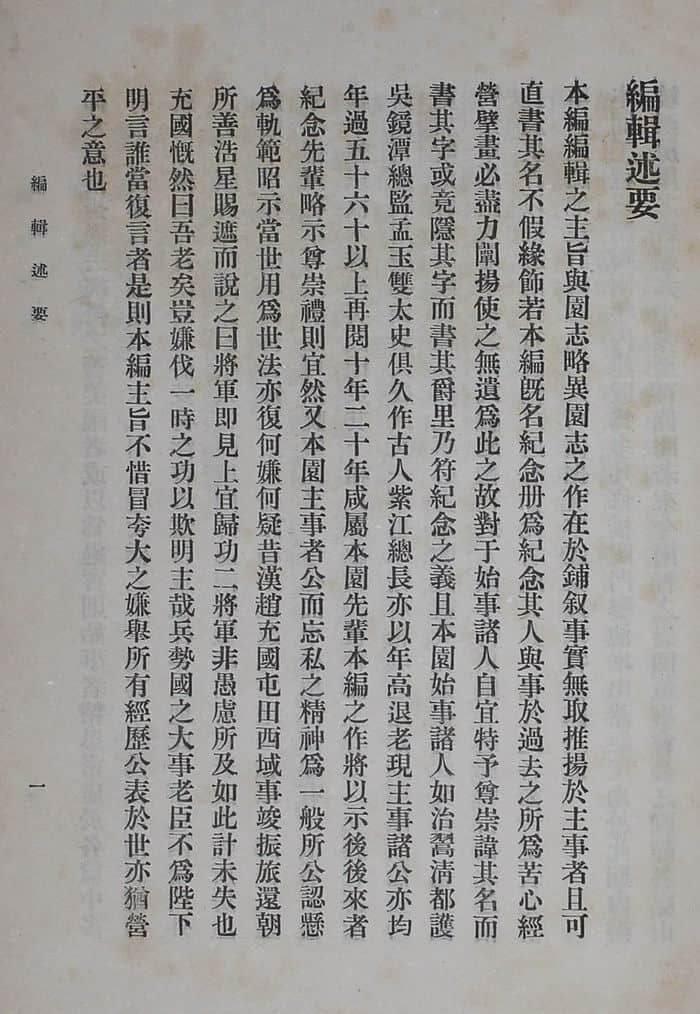 編輯述要
本編編輯之主旨與園志略異園志之作在於鋪叙事實無取推揚於主事者且可
直書其名不假緣飾若本編既名紀念册爲紀念其人與事於過去之所爲苦心經
營擘畫必盡力闡揚使之無遺爲此之故對于始事諸人自宜特予尊崇諱其名而
書其字或竟隱其字而書其爵里乃符紀念之義且本園始事諸人如治鶴淸都護
吳鏡潭總監孟玉雙太史俱久作古人紫江總長亦以年高退老現主事諸公亦均
年過五十六十以上再閱十年二十年咸屬本園先輩本編之作將以示後後來者
紀念先輩略示尊崇禮則宜然又本園主事者公而忘私之精神爲一般所公認懸
爲軌範昭示當世用爲世法亦復何嫌何疑昔漢趙充國屯田西域事竣振旅還朝
所善浩星賜遮而說之曰將軍即見上宜歸功二將軍非愚慮所及如此計未失也
充國慨然曰吾老矣豈嫌伐一時之功以欺明主哉兵勢國之大事老臣不爲陛下
明言誰當復言者是則本編主旨不惜冒夸大之嫌舉所有經歷公表於世亦猶營
平之意也
編輯述要
一